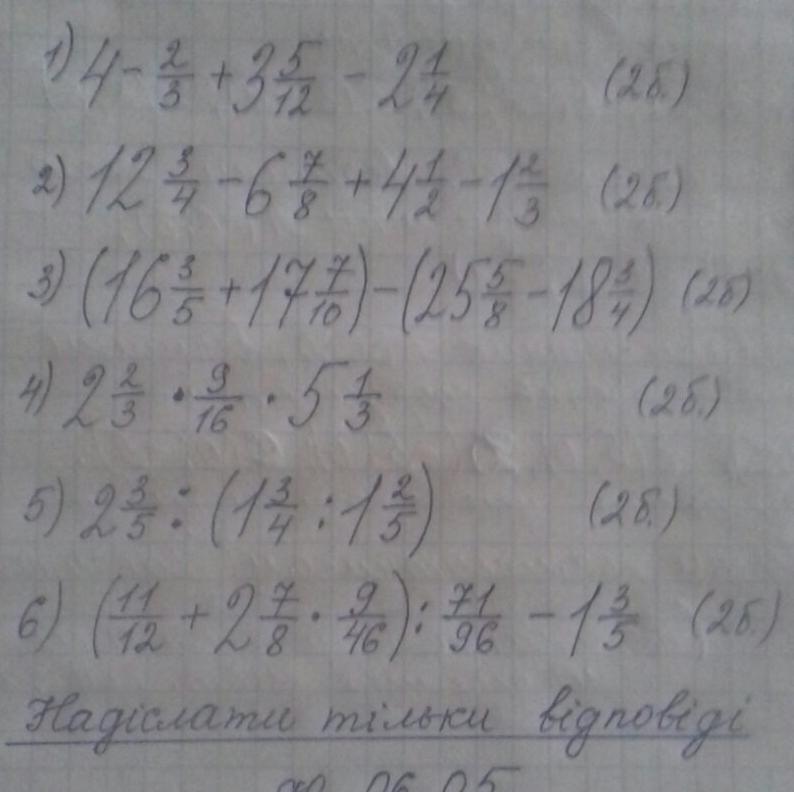 1) 4 - 2/3 + 3 5/12 - 2 1/4 (2б.)
2) 12 3/4 - 6 7/8 + 4 1/2 - 1 2/3 (2б.)
3) (16 3/5 + 17 7/10) - (25 5/8 - 18 3/4) (2б)
4) 2 2/3 · 9/16 · 5 1/3 (2б.)
5) 2 3/5 : (1 3/4 : 1 2/5) (2б.)
6) (11/12 + 2 7/8 · 9/46) : 71/96 - 1 3/5 (2б.)
Надіслати тільки відповіді
06.05